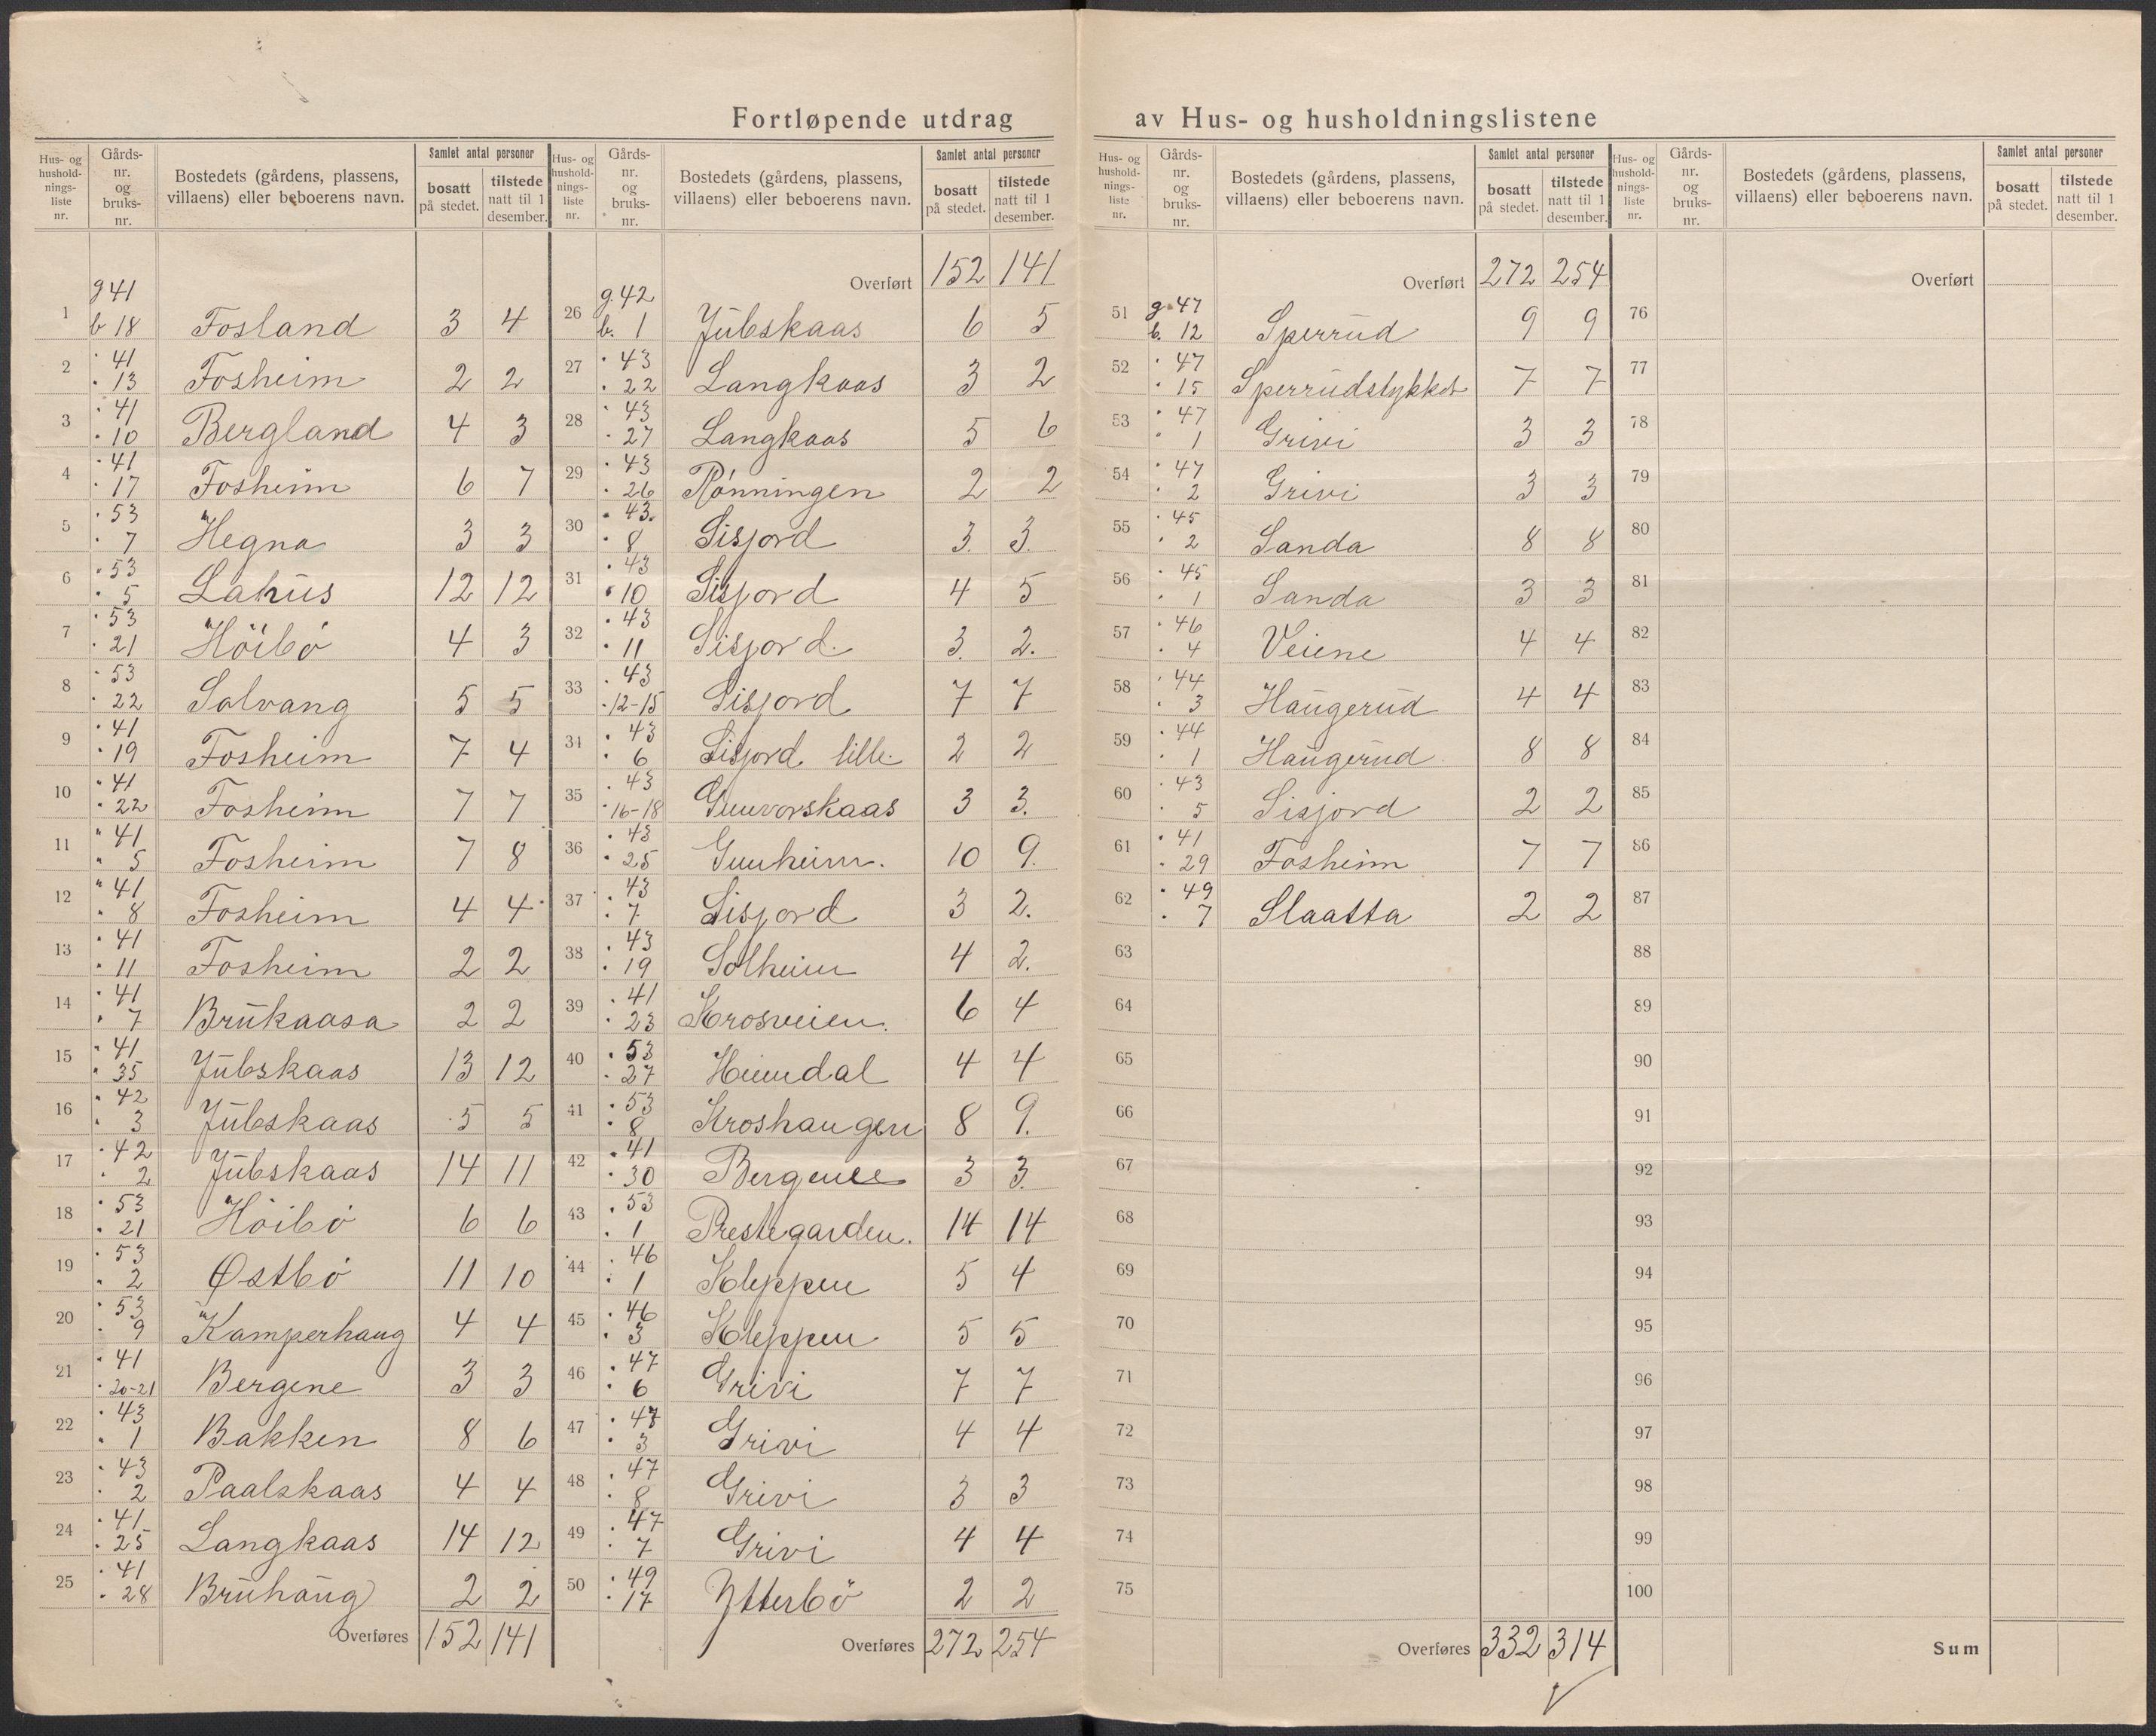 Fortløpende utdrag av Hus- og husholdningslistene
Hus- og husholdnings-liste nr. | Gårds-nr. og bruks-nr. | Bostedets (gårdens, plassens, villaens) eller beboerens navn. | Samlet antal personer | bosatt på stedet. | tilstede natt til 1 desember.
1 g 41 b 18 Fosland 3 4
2 " 41 " 13 Fosheim 2 2
3 " 41 " 10 Bergland 4 3
4 " 41 " 17 Fosheim 6 7
5 " 53 " 7 Hegna 3 3
6 " 53 " 5 Lahus 12 12
7 " 53 " 21 Höibö 4 3
8 " 53 " 22 Solvang 5 5
9 " 41 " 19 Fosheim 7 4
10 " 41 " 22 Fosheim 7 7
11 " 41 " 5 Fosheim 7 8
12 " 41 " 8 Fosheim 4 4
13 " 41 " 11 Fosheim 2 2
14 " 41 " 7 Brukaasa 2 2
15 " 41 " 35 Jubskaas 13 12
16 " 42 " 3 Jubskaas 5 5
17 " 42 " 2 Jubskaas 14 11
18 " 53 " 21 Höibö 6 6
19 " 53 " 2 Østbö 11 10
20 " 53 " 9 Kamperhaug 4 4
21 " 41 " 20-21 Bergene 3 3
22 " 43 " 1 Bakken 8 6
23 " 43 " 2 Paalskaas 4 4
24 " 41 " 25 Langkaas 14 12
25 " 41 " 28 Bruhaug 2 2
Overføres 152 141
Hus- og husholdnings-liste nr. | Gårds-nr. og bruks-nr. | Bostedets (gårdens, plassens, villaens) eller beboerens navn. | Samlet antal personer | bosatt på stedet. | tilstede natt til 1 desember.
Overført 152 141
26 g. 42 b. 1 Jubskaas 6 5
27 " 43 " 22 Langkaas 3 2
28 " 43 " 27 Langkaas 5 6
29 " 43 " 26 Rönningen 2 2
30 " 43. " 8 Sisjord 3. 3.
31 " 43 " 10 Sisjord 4 5
32 " 43 " 11 Sisjord. 3. 2.
33 " 43 " 12-15 Sisjord 7 7
34 " 43 " 6 Sisjord lille. 2 2
35 " 43 " 16-18 Gunvorskaas 3 3.
36 " 43 " 25 Gunheim. 10 9.
37 " 43 " 7 Sisjord 3 2.
38 " 43 " 19 Solheim 4 2.
39 " 41 " 23 Krosveien. 6 4
40 " 53 " 27 Heimdal 4 4
41 " 53 " 8 Kroshaugen 8 9.
42 " 41 " 30 Bergene 3 3.
43 " 53 " 1 Prestegarden. 14 14
44 " 46 " 1 Kleppen 5 4
45 " 46 " 3 Kleppen 5 5
46 " 47 " 6 Grivi 7 7
47 " 47 " 3 Grivi 4 4
48 " 47 " 8 Grivi 3 3
49 " 47 " 7 Grivi 4 4
50 " 49 " 17 Ytterbö 2 2
Overføres 272 254
Hus- og husholdnings-liste nr. | Gårds-nr. og bruks-nr. | Bostedets (gårdens, plassens, villaens) eller beboerens navn. | Samlet antal personer | bosatt på stedet. | tilstede natt til 1 desember.
Overført 272 254
51 g. 47 b. 12 Sperrud 9 9
52 " 47 " 15 Sperrudstykket 7 7
53 " 47 " 1 Grivi 3 3
54 " 47 " 2 Grivi 3 3
55 " 45 " 2 Sanda 8 8
56 " 45 " 1 Sanda 3 3
57 " 46 " 4 Veiene 4 4
58 " 44 " 3 Haugerud 4 4
59 " 44 " 1 Haugerud 8 8
60 " 43 " 5 Sisjord 2 2
61 " 41 " 29 Fosheim 7 7
62 " 49 " 7 Slaatta 2 2
63
64
65
66
67
68
69
70
71
72
73
74
75
Overføres 332 314
Hus- og husholdnings-liste nr. | Gårds-nr. og bruks-nr. | Bostedets (gårdens, plassens, villaens) eller beboerens navn. | Samlet antal personer | bosatt på stedet. | tilstede natt til 1 desember.
Overført
76
77
78
79
80
81
82
83
84
85
86
87
88
89
90
91
92
93
94
95
96
97
98
99
100
Sum